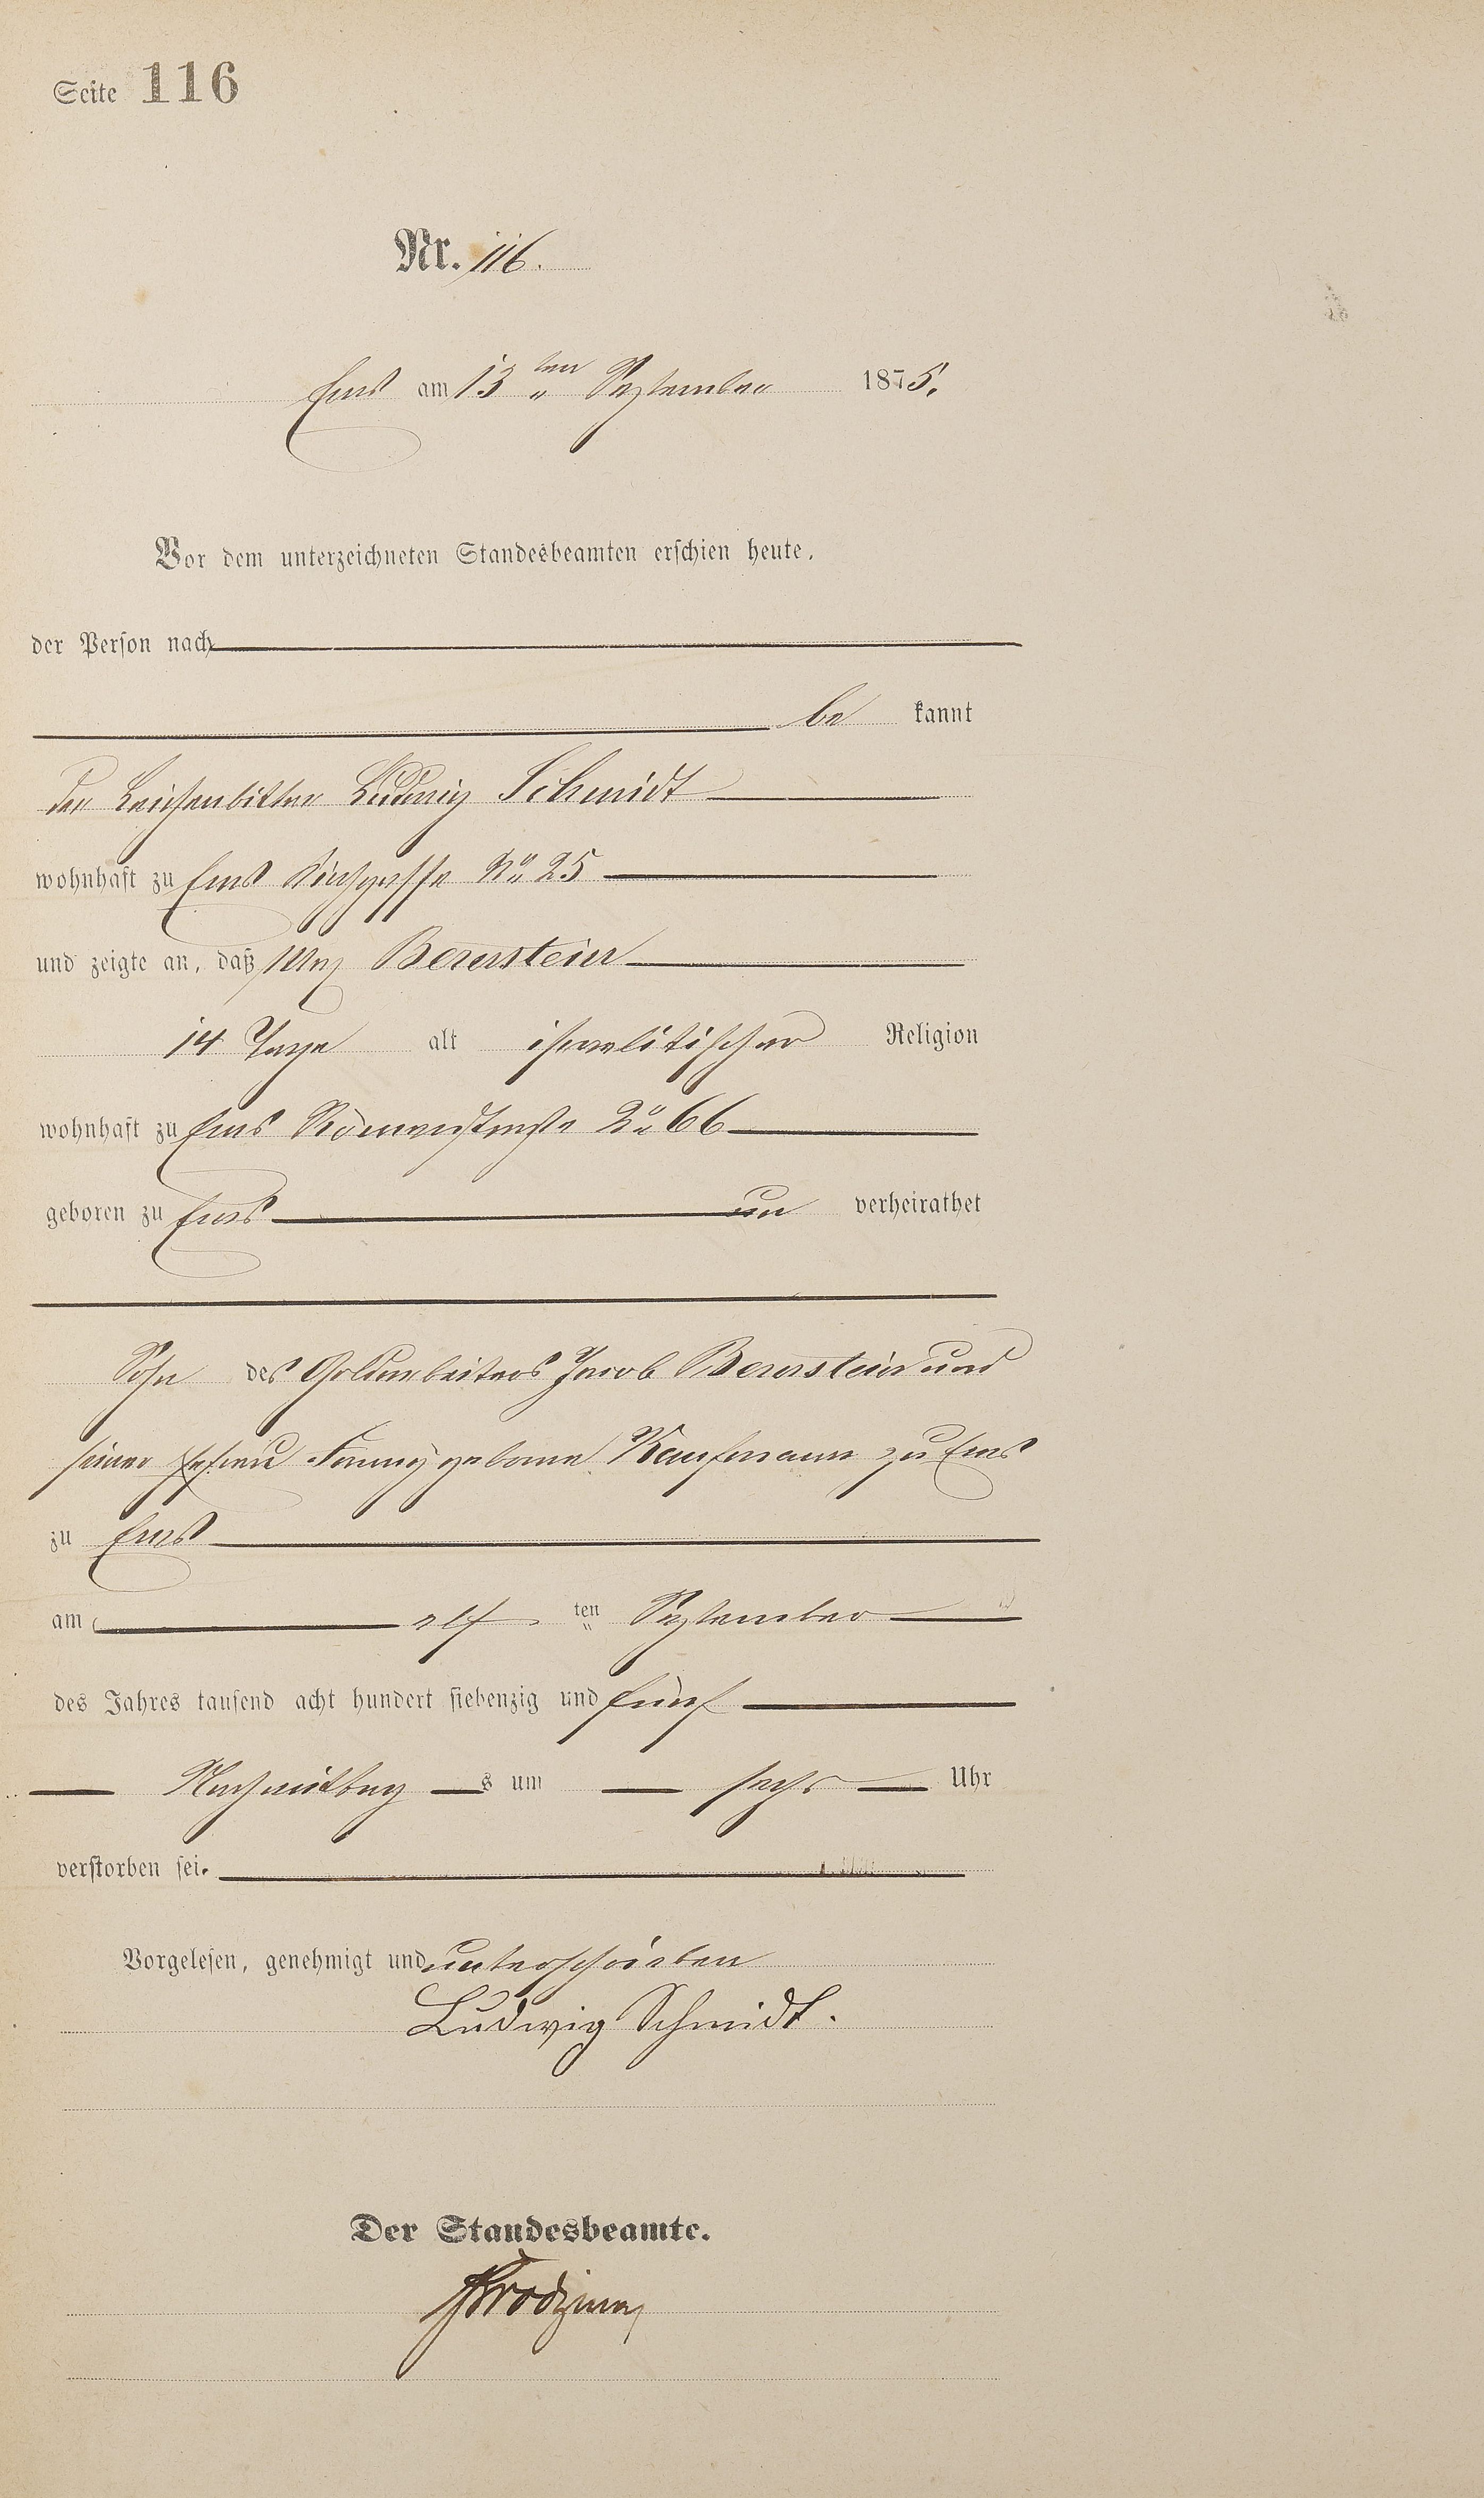 Seite 116
Nr. 116.
Ems am 13ten September 1875.
Vor dem unterzeichneten Standesbeamten erschien heute,
der Person nach
be kannt
der Leichenbitter Ludwig Schmidt
wohnhaft zu Ems Kirchgasse No 25
und zeigte an, daß Max Bernstein
14 Tage alt israelitischer Religion
wohnhaft zu Ems Römerstraße No 66
geboren zu Ems un verheirathet
Sohn des Goldarbeiters Jacob Bernstein und
seiner Ehefrau Fanny geborne Kaufmann zu Ems
zu Ems
am elf ten September
des Jahres tausend acht hundert siebenzig und fünf
Nachmittag s um sechs Uhr
verstorben sei.
Vorgelesen, genehmigt und unterschrieben
Ludwig Schmidt.
Der Standesbeamte.